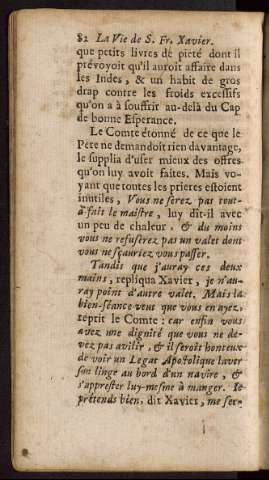 82 La Vie de S. Fr. Xavier.
que petits livres de pieté dont il
prévoyoit qu'il auroit affaire dans
les Indes, & un habit de gros
drap contre les froids excessifs
qu'on a à souffrir au-delà du Cap
de bonne Esperance.
Le Comte étonné de ce que le
Pere ne demandoit rien davantage,
le supplia d'user mieux des offres
qu'on luy avoit faites. Mais vo-
yant que toutes les prieres estoient
inutiles, Vous ne serez pas tout-
à-fait le maistre, luy dit-il avec
un peu de chaleur, & du moins
vous ne refuserez pas un valet dont
vous ne sçauriez vous passer.
Tandis que j'auray ces deux
mains, repliqua Xavier, je n'au-
ray point d'autre valet. Mais la
bien-séance veut que vous en ayez,
reprit le Comte: car enfin vous
avez une dignité que vous ne de-
vez pas avilir, & il seroit honteux
de voir un Legat Apostolique laver
son linge au bord d'un navire, &
s'apprester luy-mesme à manger. Je
prétends bien, dit Xavier, me ser-